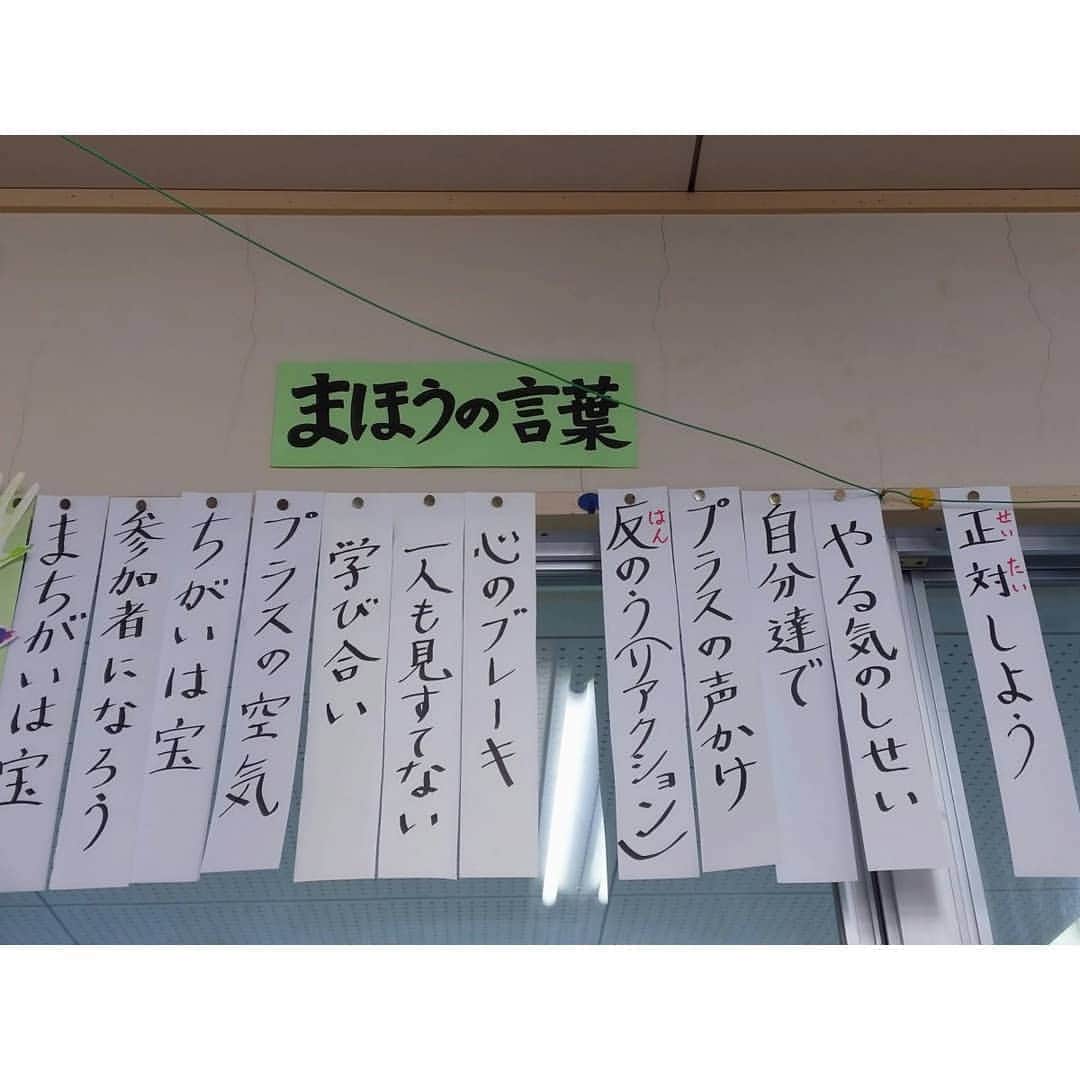 まほうの言葉
正対しよう
せい たい
やる気のしせい
自分達で
プラスの声かけ
反のう(リアクション)
はん
心のブレーキ
一人も見すてない
学び合い
プラスの空気
ちがいは宝
参加者になろう
まちがいは宝